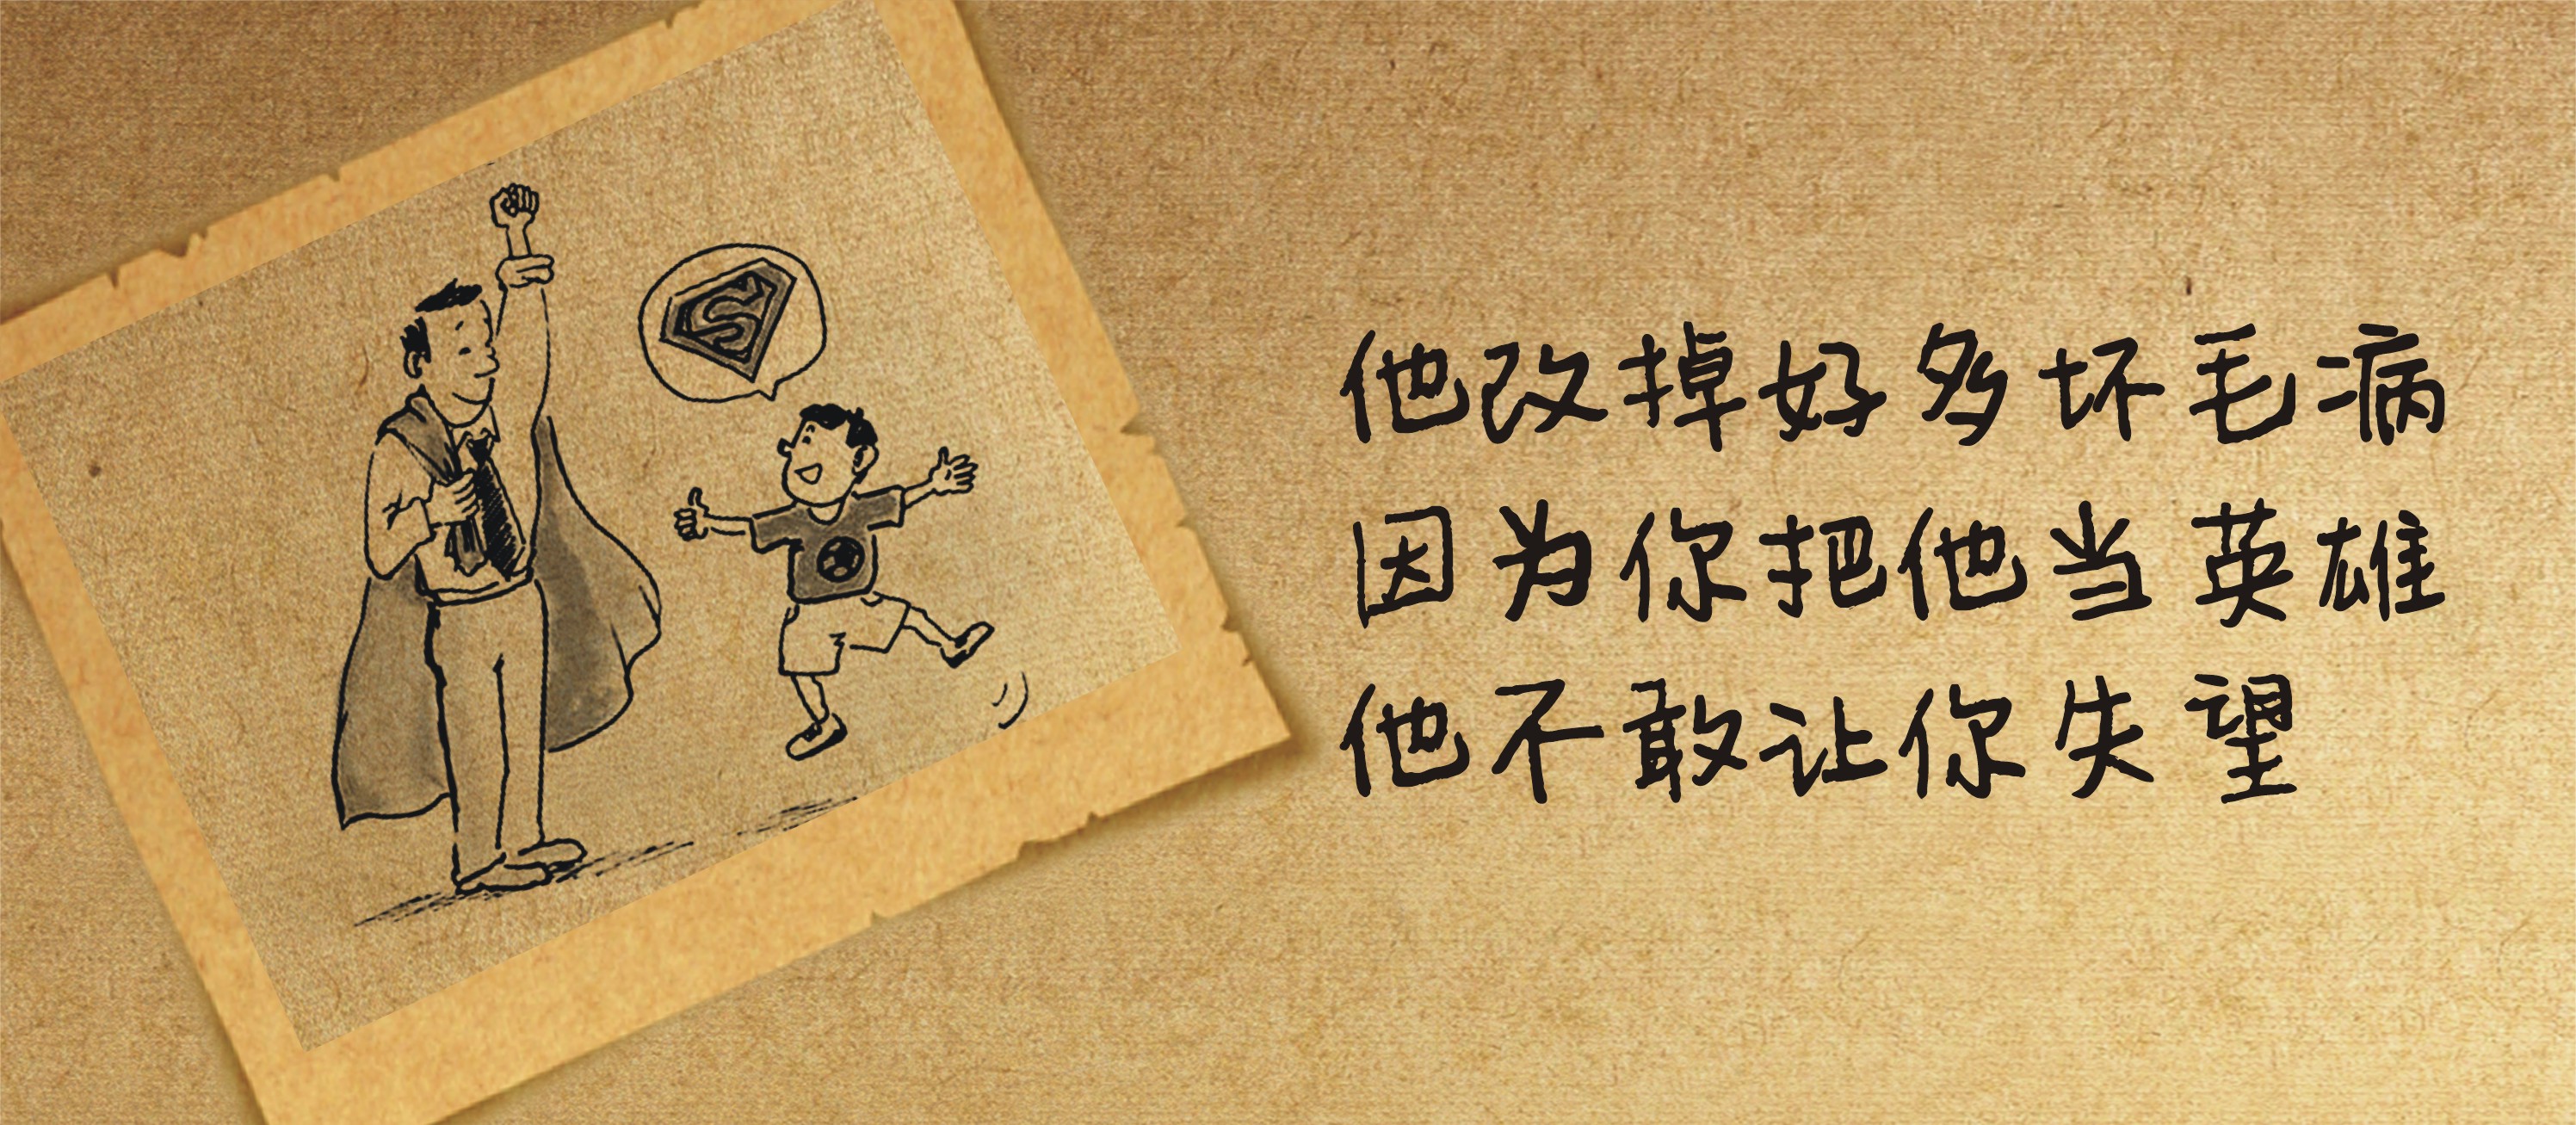 S
他改掉好多坏毛病
因为你把他当英雄
他不敢让你失望